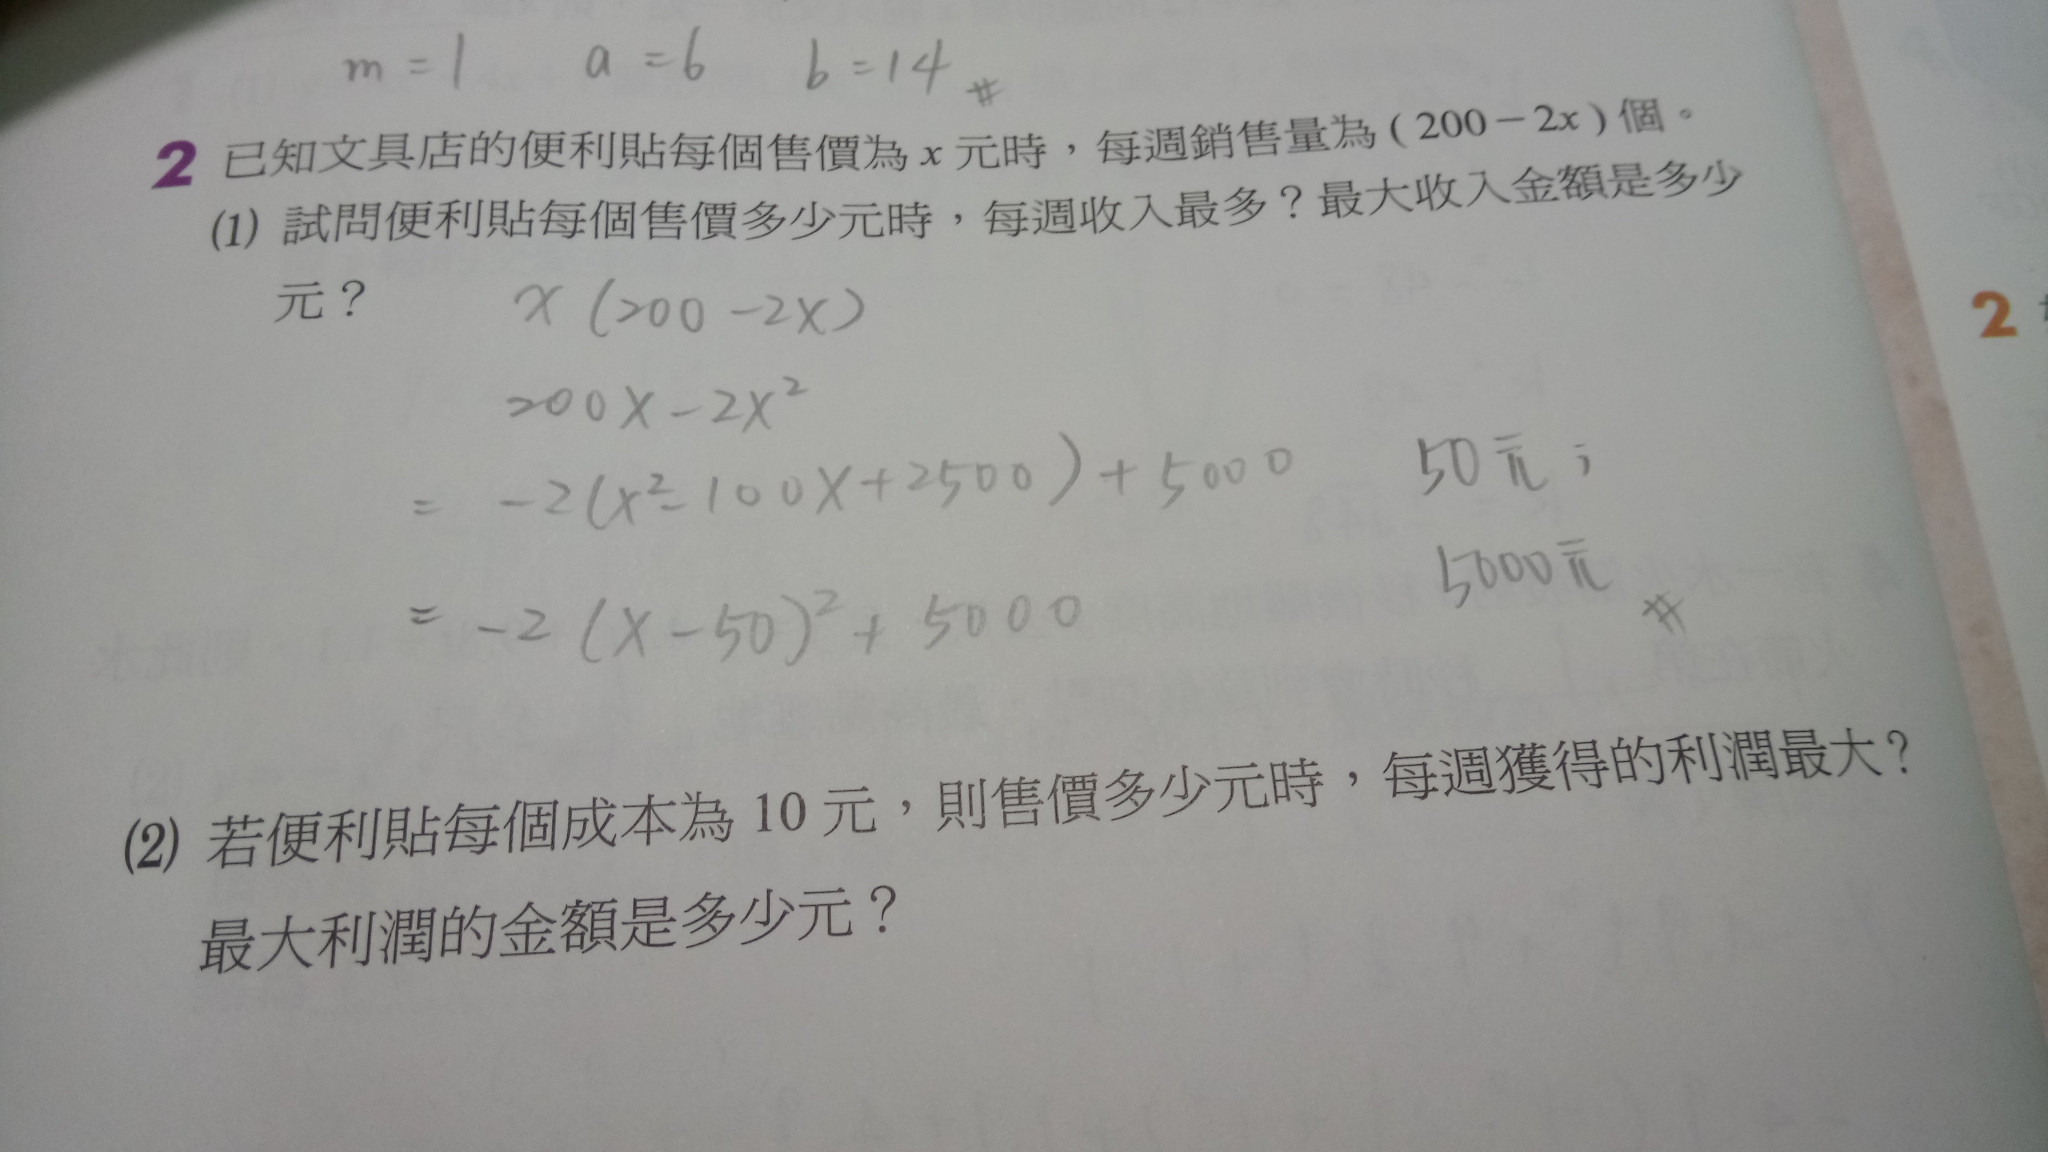 m=1 a=6 b=14 #
2 已知文具店的便利貼每個售價為 x 元時，每週銷售量為(200-2x)個。
(1) 試問便利貼每個售價多少元時，每週收入最多？最大收入金額是多少
元？
x(200-2x)
200x-2x²
= -2(x²-100x+2500)+5000 50元；
= -2(x-50)²+5000 5000元 #
(2) 若便利貼每個成本為 10 元，則售價多少元時，每週獲得的利潤最大？
最大利潤的金額是多少元？
2